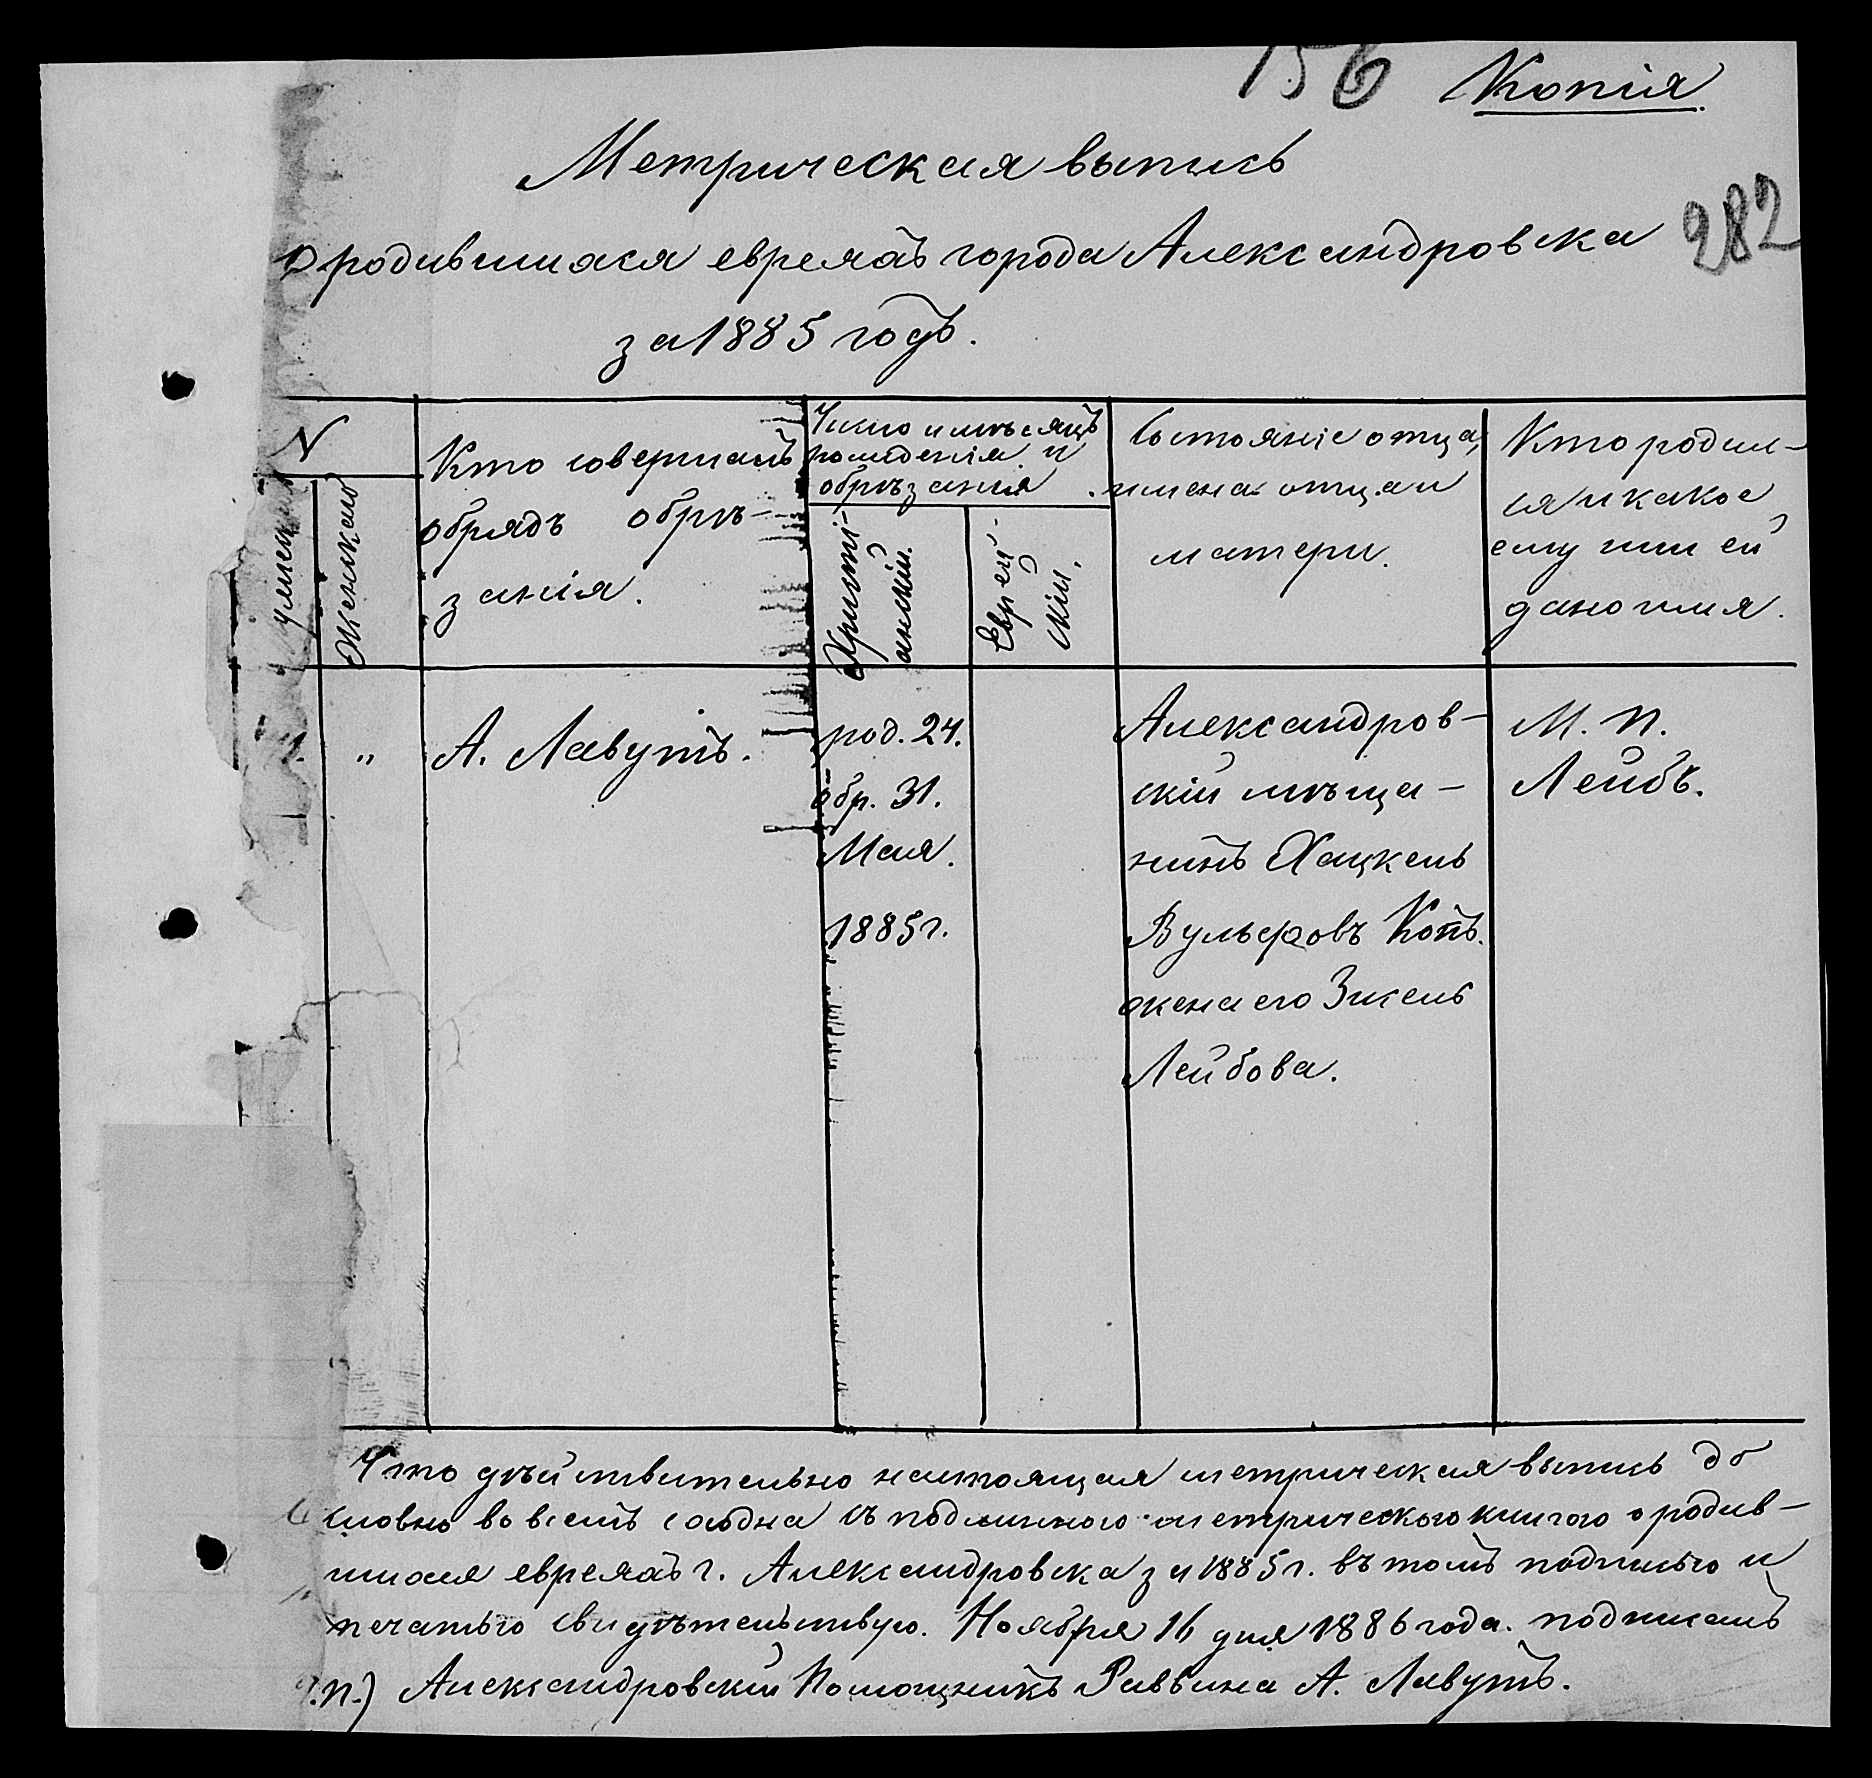 156 Копія
Метрическая выпись
282
о родившихся евреяхъ города Александровска
за 1885 годъ.
N
Женскаго
Кто совершалъ
обрядъ обрѣ-
занія.
Число и мѣсяцъ
рожденія и
обрѣзанія
Христі-
анскій.
Еврей-
скій.
Состояніе отца,
имена отца и
матери.
Кто родил-
ся и какое
ему или ей
дано имя.
"
А. Лавутъ.
род. 24.
обр. 31.
Мая.
1885 г.
Александров-
скій мѣща-
нинъ Хацкель
Вульфовъ Копъ.
жена его Зисель
Лейбова.
М. П.
Лейбъ.
Что дѣйствительно настоящая метрическая выпись до
словно во всемъ сходна съ подлинною метрическою книгою о родив-
шихся евреяхъ г. Александровска за 1885 г. въ томъ подписью и
печатью свидѣтельствую. Ноября 16 дня 1886 года. подписалъ
.п.) Александровскій Помощникъ Раввина А. Лавутъ.